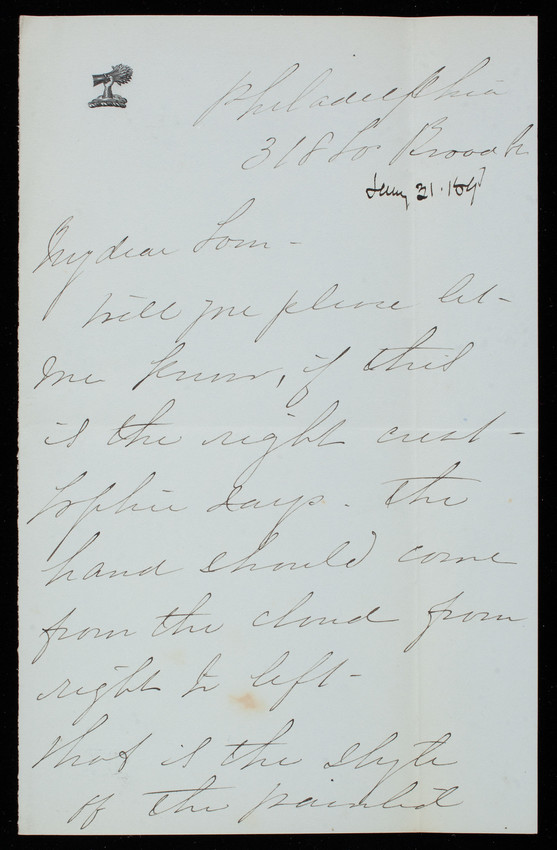 Philadelphia
318 So Broad St
Jany 21.
My dear Tom -
Will you please let
me know, if this
is the right crest -
Sophie says. The
hand should come
from the cloud from
right to left -
that is the style
of the painted